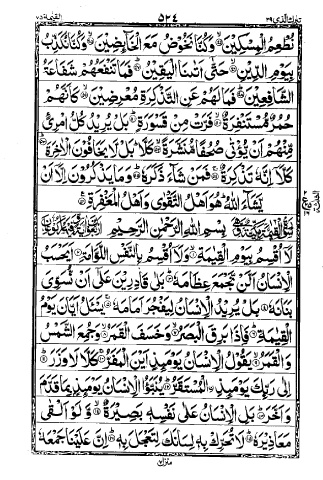 تبرك الذي ٢٩ ٥٢٤ القيمة ٧٥
نُطْعِمُ الْمِسْكِيْنَ ۙ وَكُنَّا نَخُوْضُ مَعَ الْخَآئِضِيْنَ ۙ وَكُنَّا نُكَذِّبُ
بِيَوْمِ الدِّيْنِ ۙ حَتّٰۤى اَتٰىنَا الْيَقِيْنُ ؕ فَمَا تَنْفَعُهُمْ شَفَاعَةُ
الشّٰفِعِيْنَ ؕ فَمَا لَهُمْ عَنِ التَّذْكِرَةِ مُعْرِضِيْنَ ۙ كَاَنَّهُمْ
حُمُرٌ مُّسْتَنْفِرَةٌ ۙ فَرَّتْ مِنْ قَسْوَرَةٍ ؕ بَلْ يُرِيْدُ كُلُّ امْرِئٍ
مِّنْهُمْ اَنْ يُّؤْتٰى صُحُفًا مُّنَشَّرَةً ۙ كَلَّا ؕ بَلْ لَّا يَخَافُوْنَ الْاٰخِرَةَ ؕ
كَلَّاۤ اِنَّهٗ تَذْكِرَةٌ ۚ فَمَنْ شَآءَ ذَكَرَهٗ ؕ وَمَا يَذْكُرُوْنَ اِلَّاۤ اَنْ
يَّشَآءَ اللّٰهُ ؕ هُوَ اَهْلُ التَّقْوٰى وَاَهْلُ الْمَغْفِرَةِ ۠
بِسْمِ اللّٰهِ الرَّحْمٰنِ الرَّحِيْمِ
لَاۤ اُقْسِمُ بِيَوْمِ الْقِيٰمَةِ ۙ وَلَاۤ اُقْسِمُ بِالنَّفْسِ اللَّوَّامَةِ ؕ اَيَحْسَبُ
الْاِنْسَانُ اَلَّنْ نَّجْمَعَ عِظَامَهٗ ؕ بَلٰى قٰدِرِيْنَ عَلٰۤى اَنْ نُّسَوِّيَ
بَنَانَهٗ ۚ بَلْ يُرِيْدُ الْاِنْسَانُ لِيَفْجُرَ اَمَامَهٗ ۚ يَسْئَلُ اَيَّانَ يَوْمُ
الْقِيٰمَةِ ؕ فَاِذَا بَرِقَ الْبَصَرُ ۙ وَخَسَفَ الْقَمَرُ ۙ وَجُمِعَ الشَّمْسُ
وَالْقَمَرُ ۙ يَقُوْلُ الْاِنْسَانُ يَوْمَئِذٍ اَيْنَ الْمَفَرُّ ۚ كَلَّا لَا وَزَرَ ؕ
اِلٰى رَبِّكَ يَوْمَئِذِ ۨالْمُسْتَقَرُّ ؕ يُنَبَّؤُا الْاِنْسَانُ يَوْمَئِذٍۭ بِمَا قَدَّمَ
وَاَخَّرَ ؕ بَلِ الْاِنْسَانُ عَلٰى نَفْسِهٖ بَصِيْرَةٌ ۙ وَّلَوْ اَلْقٰى
مَعَاذِيْرَهٗ ؕ لَا تُحَرِّكْ بِهٖ لِسَانَكَ لِتَعْجَلَ بِهٖ ؕ اِنَّ عَلَيْنَا جَمْعَهٗ
منزل